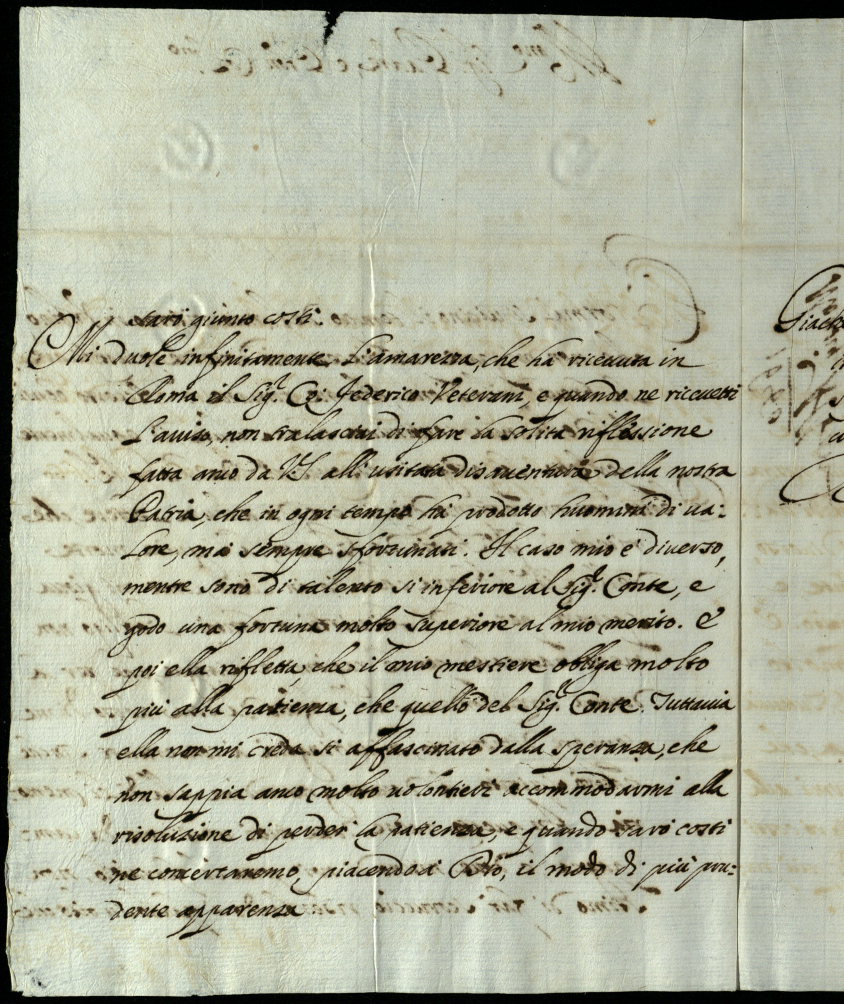 sarò giunto costi.
Mi duole infinitamente L'amarezza, che ha riceuuta in
Roma il Sig.r Co: Federico Veterani, e quando ne riceuetti
L'auiso, non tralasciai di fare la solita riflessione
fatta anco da VS all'usitata disauentura della nostra
Patria, che in ogni tempo ha prodotto huomini di ua-
Lore, mà sempre sfortunati. Il caso mio è diuerso,
mentre sono di talento si inferiore al Sig.r Conte, e
godo una fortuna molto superiore al mio merito. E
poi ella rifletta, che il mio mestiere obliga molto
più alla patienza, che quello del Sig.r Conte. Tuttauia
ella non mi creda si affascinato dalla speranza, che
non sappia anco molto uolontieri accommodarmi alla
risoluzione di perder la patienza, e quando sarò costi
ne concertaremo, piacendo à Dio, il modo di più pru-
dente apparenza